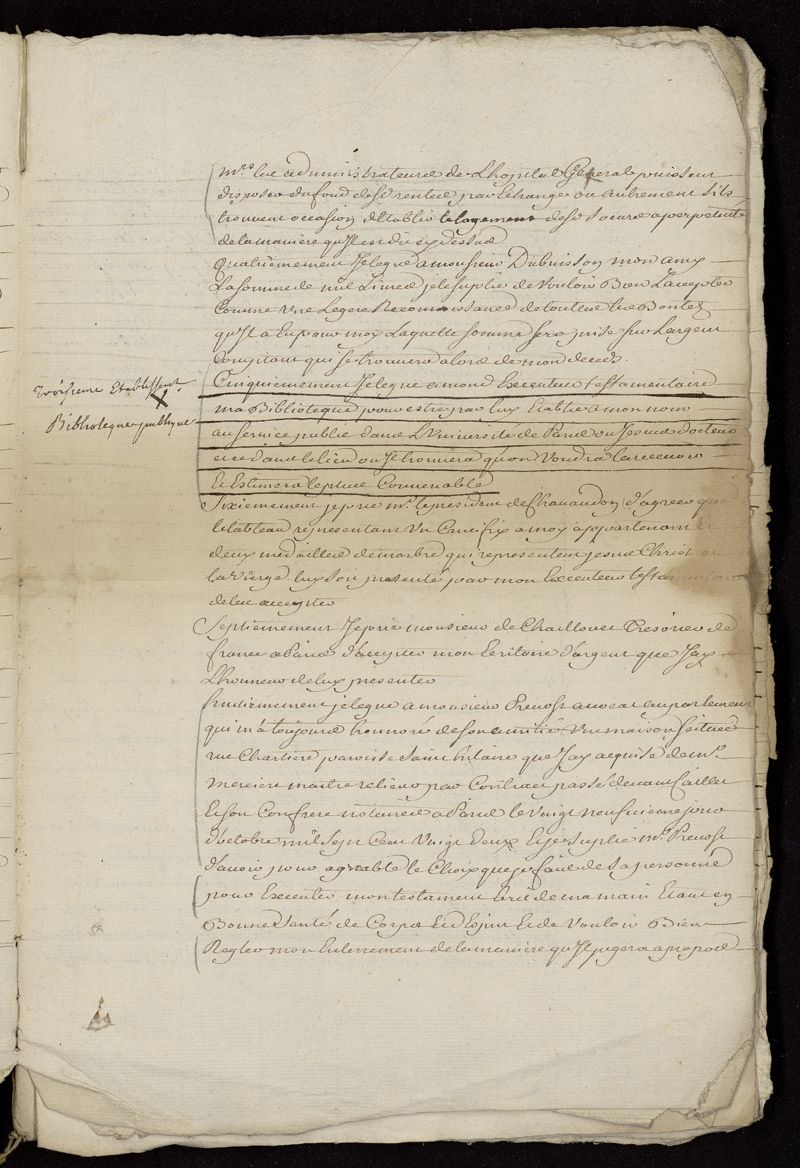 mrs les administrateurs de Lhopital General puissent
disposer du fond desd rentes par Echange ou autrement sils
trouvent occasion detablir le logement desd soeurs a perpetuité
de la maniere quil est dit cy dessus
quatriemement Je legue a monsieur Dubuisson mon amy
La somme de mil Livres je le suplie de vouloir Bien Laccepter
Comme une Legere Reconnoissance de toutes les Bontez
qu'Il a Eu pour moy Laquelle somme sera prise sur Largent
Comptant qui se trouvera alors de mon deceds.
Troisieme Etablissemt
Bibliotheque publique
Cinquiemement Je legue a mond Executeur testamentaire
ma Biblioteque pour estre par luy Etablie a mon nom
au service public dans L'Université de Paris ou Je suis docteur
et ce dans le lieu ou Il trouvera qu'on voudra la recevoir
et Estimera le plus Convenable
Sixiemement je prie mr. le president de Chavaudon d'agreer que
le tableau representant Un Crucifix a moy appartenant et
deux medailles de marbre qui representent jesus Christ et
la Vierge luy soit presenté par mon Executeur testamentaire
de les accepter
Septiemement Je prie monsieur de Chaillouet Tresorier de
france a Paris d'accepter mon Ecritoire d'argent que J'ay
L'honneur de luy presenter
huitiemement je legue a monsieur Prevost avocat au parlement
qui m'a toujours honnoré de son amitié Une maison scituée
rue Chartiere paroisse Saint hilaire que J'ay acquise de mr.
Merciere maitre relieur par Contract passé devant
et son Confrere notaires a Paris le vingt neufvieme jour
d'octobre mil Sept Cent Vingt deux Et je suplie mr Prevost
d'avoir pour agreable le Choix que je fais de sa personne
pour Executer mon testament Ecrit de ma main Etant en
Bonne Santé de Corps et d'Esprit Et de Vouloir Bien
Regler mon Enterrement de la maniere qu'Il jugera a propos